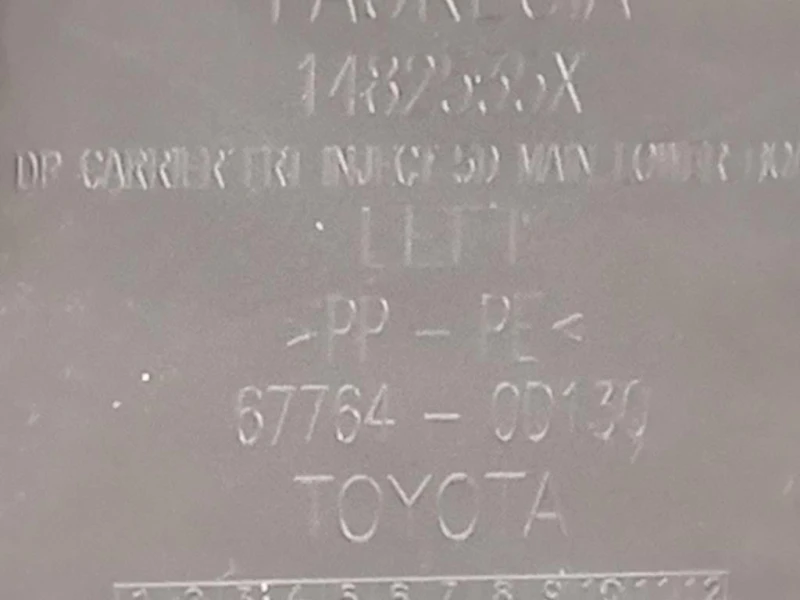 FAURECIA
1482535X
DP CARRIER FRT INJECTED MAN LOWER
LEFT
>PP - PE<
67764 - 0D130
TOYOTA
1 2 3 4 5 6 7 8 9 10 11 12